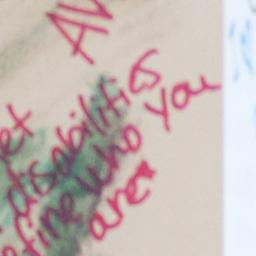 AV
let
disabilities
efine who you
are"